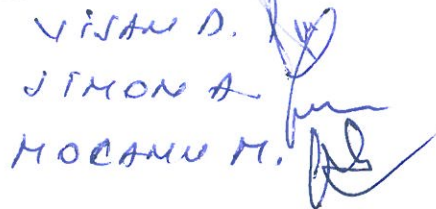 VIȘAN D.
SIMON A
MOCANU M.